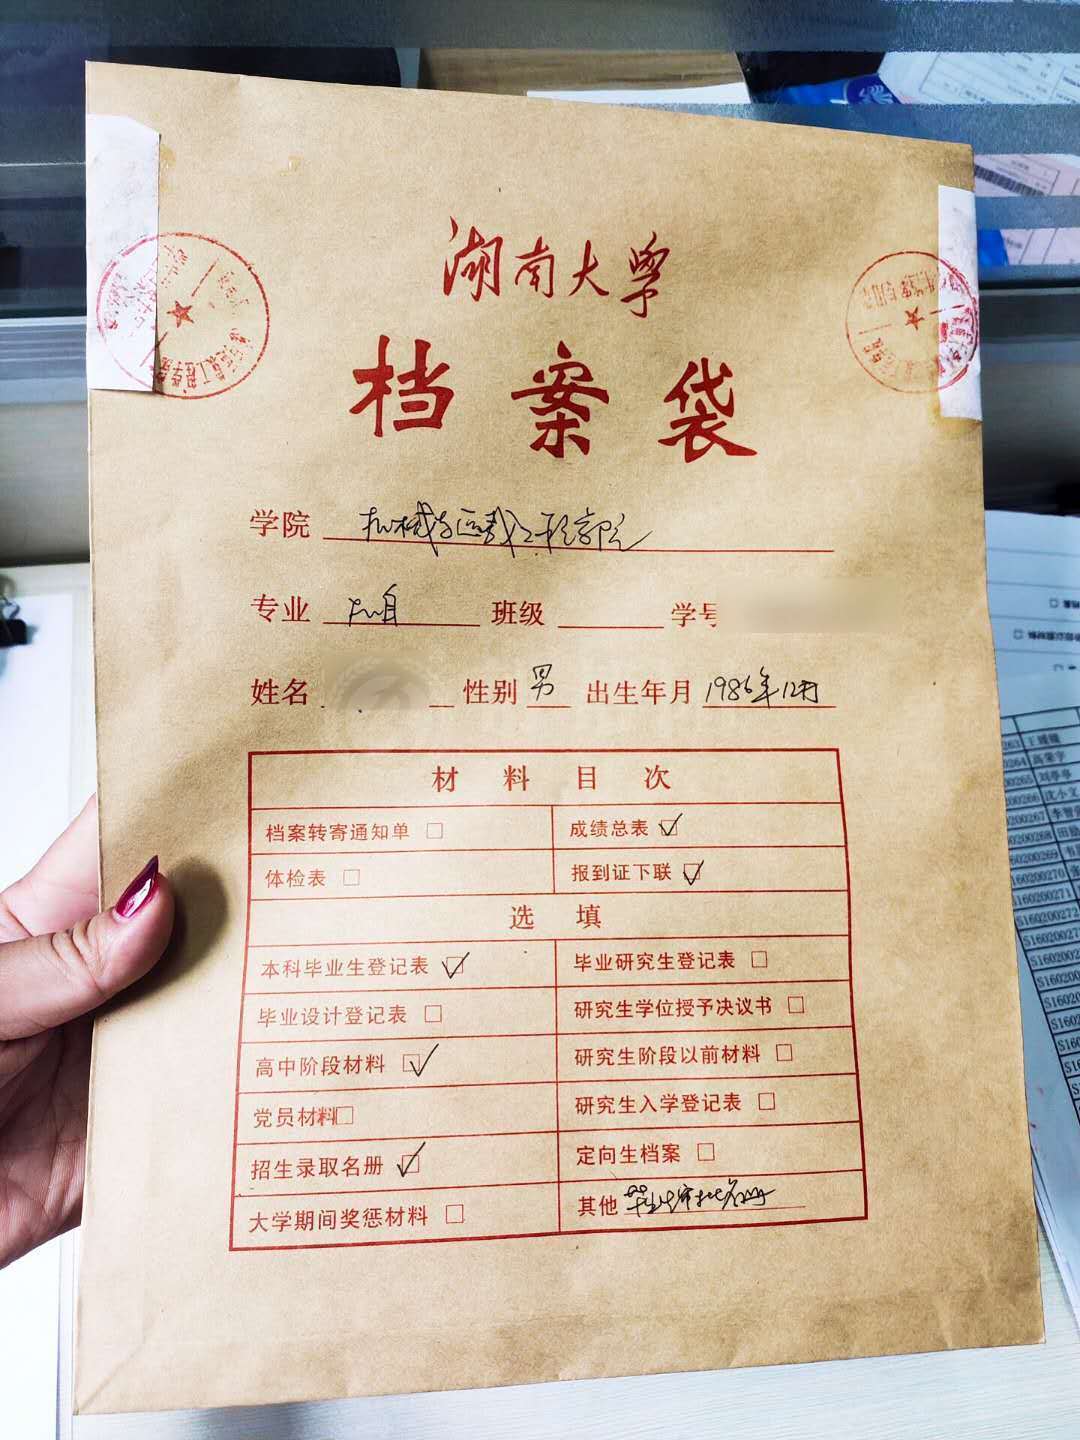 湖南大学
档案袋
学院 机械与运载工程学院
专业 机自 班级 学号
姓名 性别 男 出生年月 1986年12月
材料目次
档案转寄通知单 □ 成绩总表 ☑
体检表 □ 报到证下联 ☑
选填
本科毕业生登记表 ☑ 毕业研究生登记表 □
毕业设计登记表 □ 研究生学位授予决议书 □
高中阶段材料 ☑ 研究生阶段以前材料 □
党员材料 □ 研究生入学登记表 □
招生录取名册 ☑ 定向生档案 □
大学期间奖惩材料 □ 其他 毕业审批名册